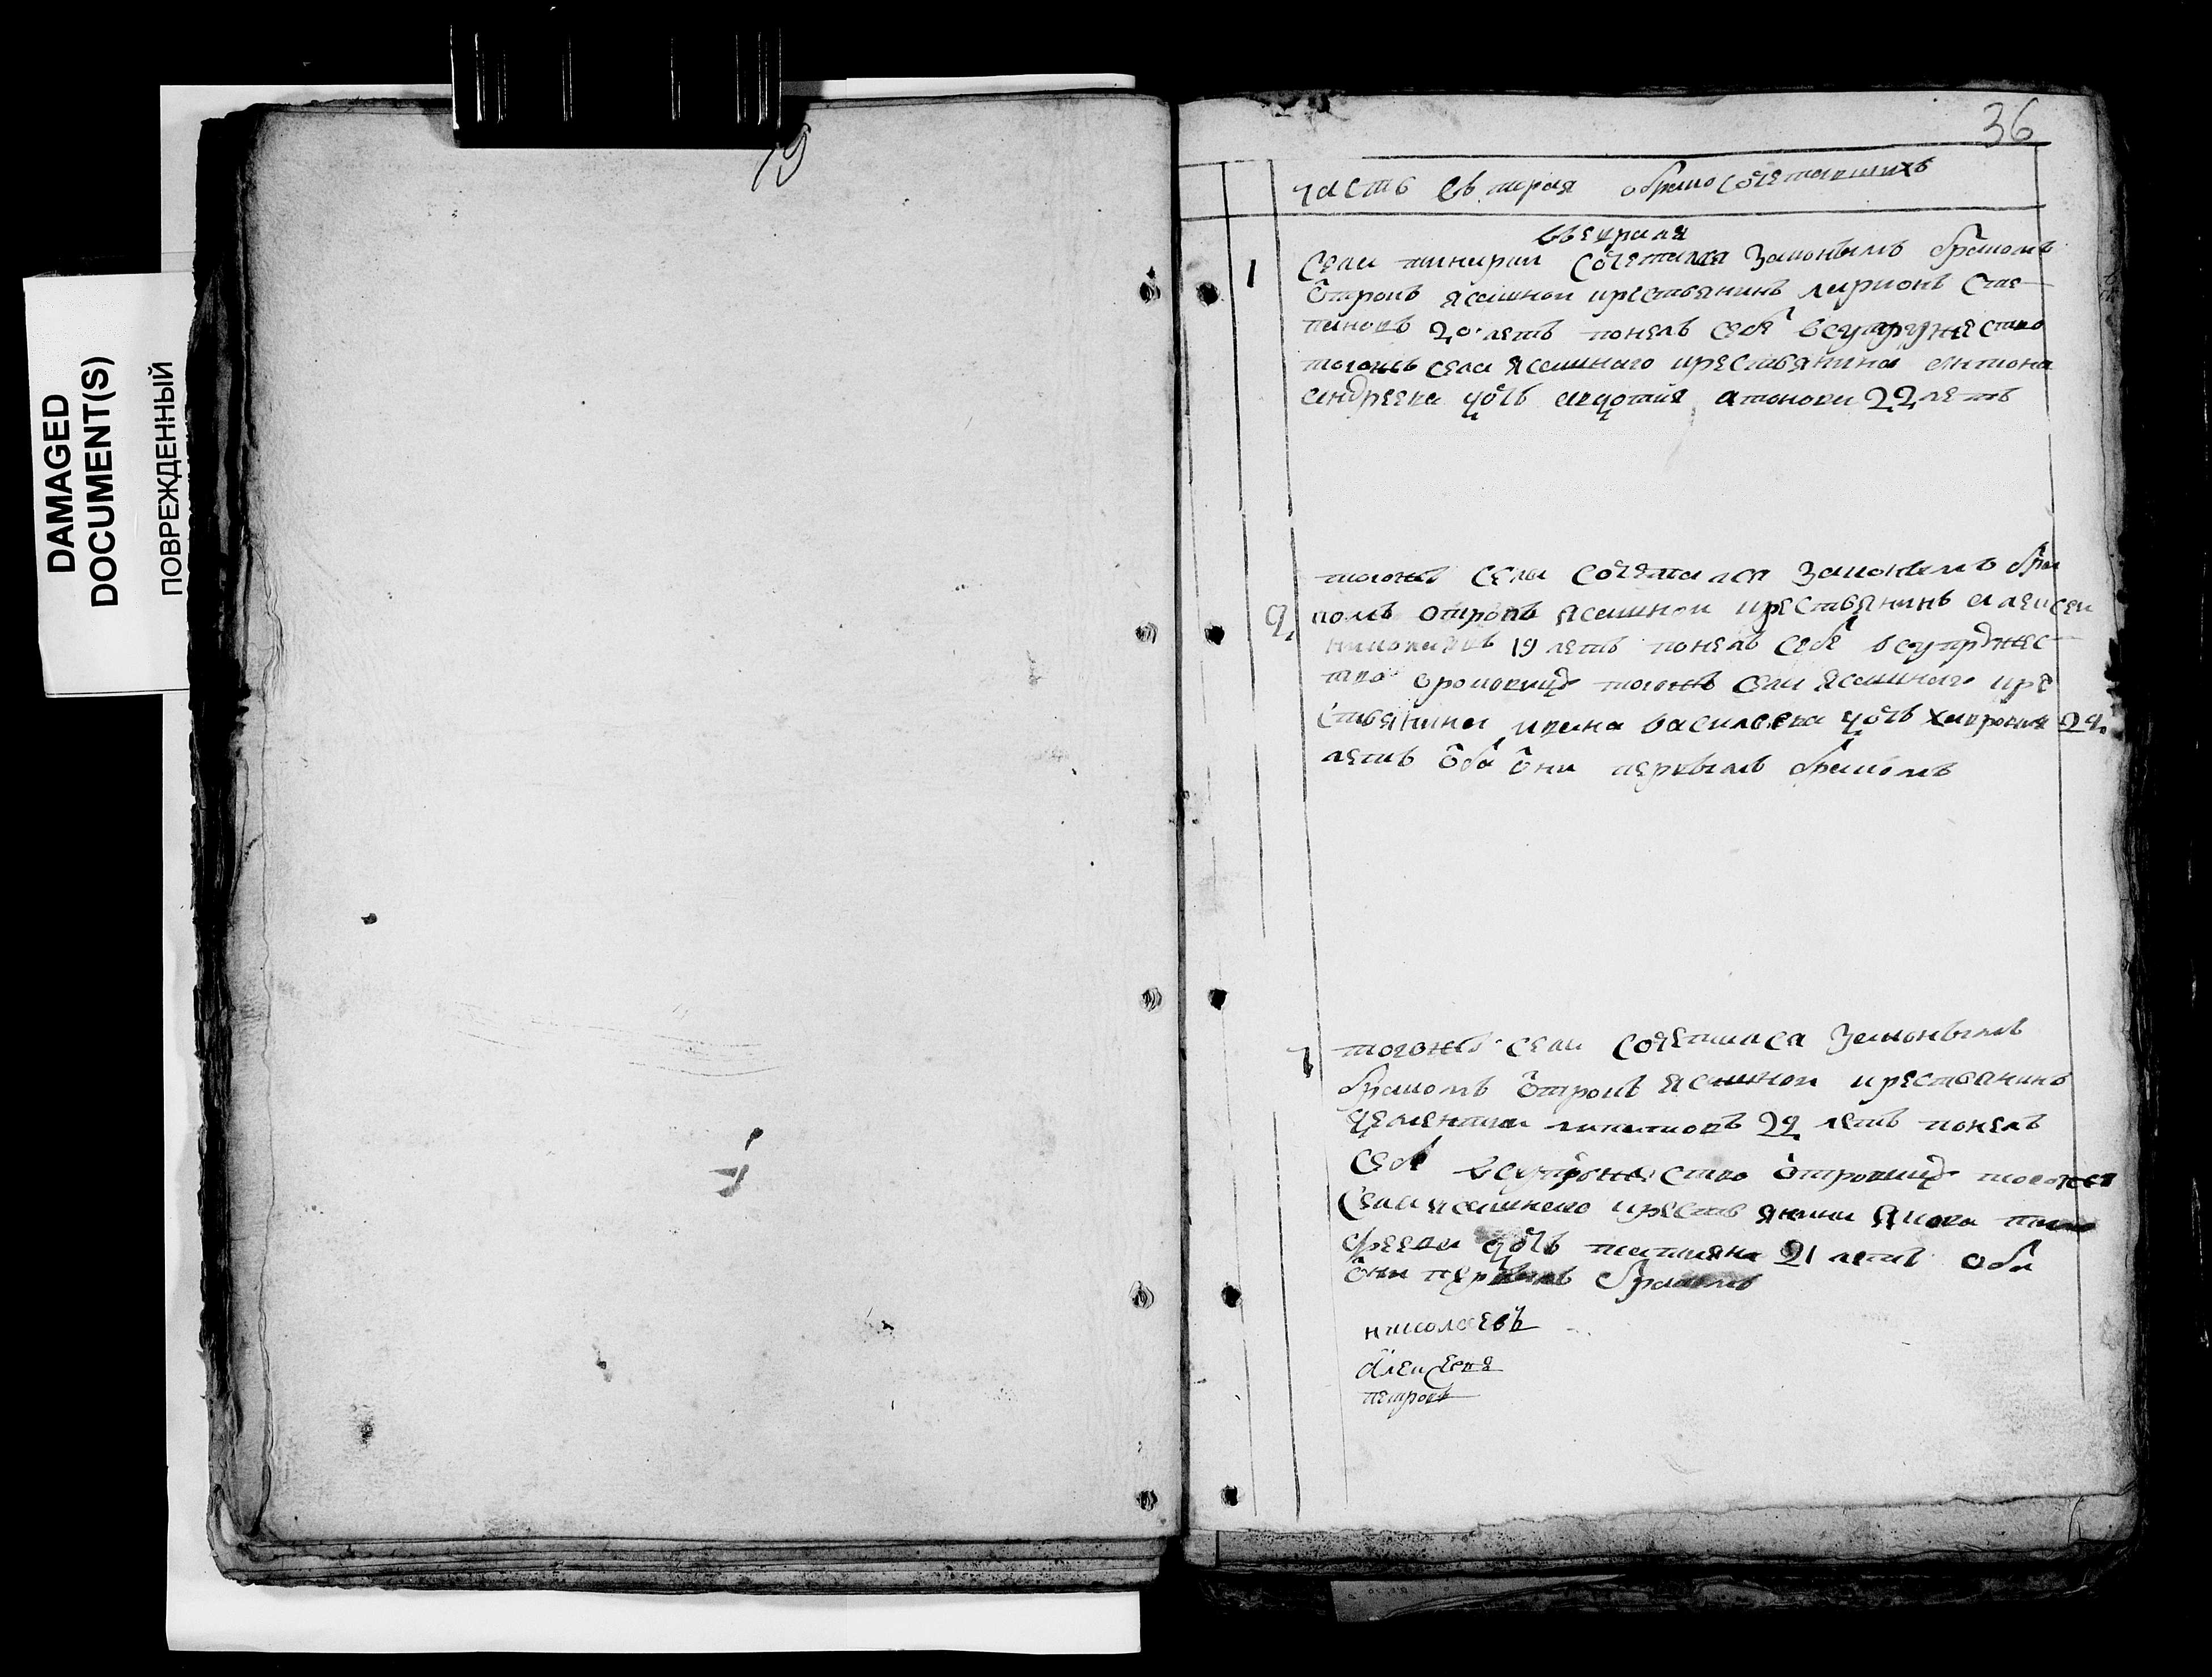 DAMAGED
DOCUMENT(S)
ПОВРЕЖДЕННЫЙ
19
36
часть вътрая обрако сочетавшихъ
1 Села сочетался законымъ бракомъ
отрокъ ясашной крестьянинъ ларионъ сте-
пановъ 20 летъ понелъ себе всупружество
тогожъ села ясашнаго крестьянина антона
андреева дочь авдотия антонова 22 летъ
2 тогожъ села сочетался законымъ бра
комъ отрокъ ясашной крестьянинъ алексеи
19 летъ понелъ себе всупружес-
тво тогожъ села ясашнаго кре
стьянина ивана васильева дочь 22
летъ оба они первымъ бракомъ
тогожъ села сочетался законымъ
бракомъ отрокъ ясашной крестьянинъ
дементеи 22 летъ понелъ
себе всупружество отроковицу тогожъ
села ясашнаго крестьянина якова тимо
феева дочь татияна 21 летъ оба
они первымъ бракомъ
николаевъ
алексеевъ
петровъ